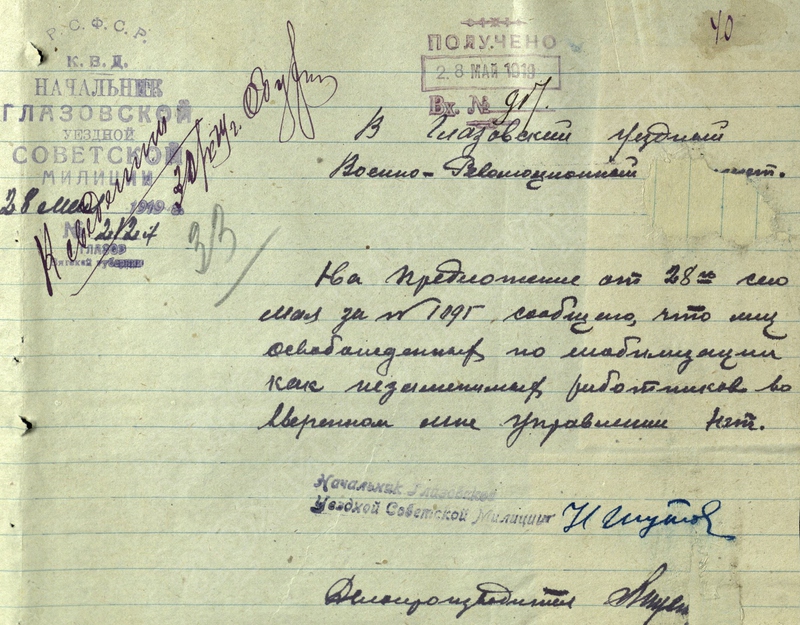 40
Р. С. Ф. С. Р.
К. В. Д.
НАЧАЛЬНИК
ГЛАЗОВСКОЙ
УЕЗДНОЙ
СОВЕТСКОЙ
МИЛИЦИИ
28 мая 1919 г.
№ 2124
ГЛАЗОВ
Вятской губернии
К сведению
33
ПОЛУЧЕНО
28 МАЙ 1919
Вх. № 917.
В Глазовский уездный
Военно-Революционный
На предложение от 28го сего
мая за № 1095, сообщаю, что лиц
освобожденных по мобилизации
как незаменимых работников во
вверенном мне управлении нет.
Начальник Глазовской
Уездной Советской Милиции Н Шутов
Делопроизводитель